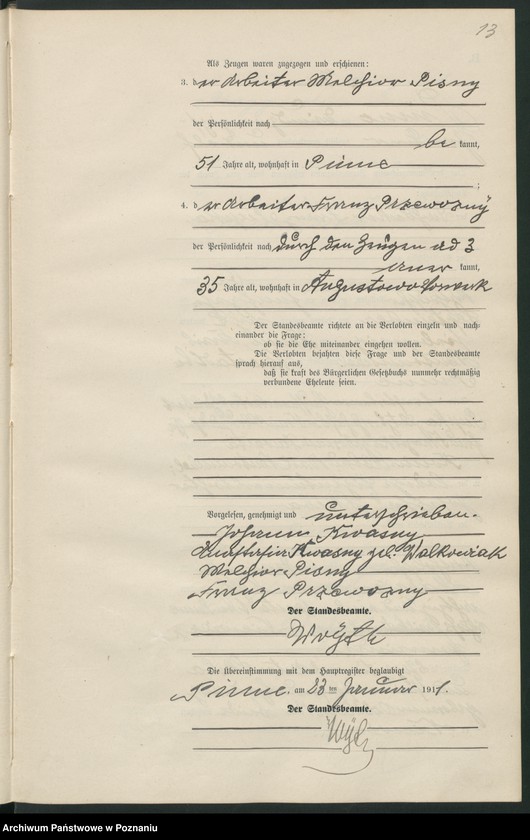 13
Als Zeugen waren zugezogen und erschienen:
3. der Arbeiter Melchior Pisny
der Persönlichkeit nach
be kannt,
51 Jahre alt, wohnhaft in Pinne
;
4. der Arbeiter Franz Przewozny
der Persönlichkeit nach durch den Zeugen ad 3
aner kannt,
35 Jahre alt, wohnhaft in Augustowo Vorwerk
Der Standesbeamte richtete an die Verlobten einzeln und nach-
einander die Frage:
ob sie die Ehe miteinander eingehen wollen.
Die Verlobten bejahten diese Frage und der Standesbeamte
sprach hierauf aus,
daß sie kraft des Bürgerlichen Gesetzbuchs nunmehr rechtmäßig
verbundene Eheleute seien.
Vorgelesen, genehmigt und unterschrieben.
Johann Kwasny
Kwasny geb. Walkowiak
Melchior Pisny
Franz Przewozny
Der Standesbeamte.
Woyth
Die Übereinstimmung mit dem Hauptregister beglaubigt
Pinne, am 23 ten Januar 1911.
Der Standesbeamte.
Archiwum Państwowe w Poznaniu